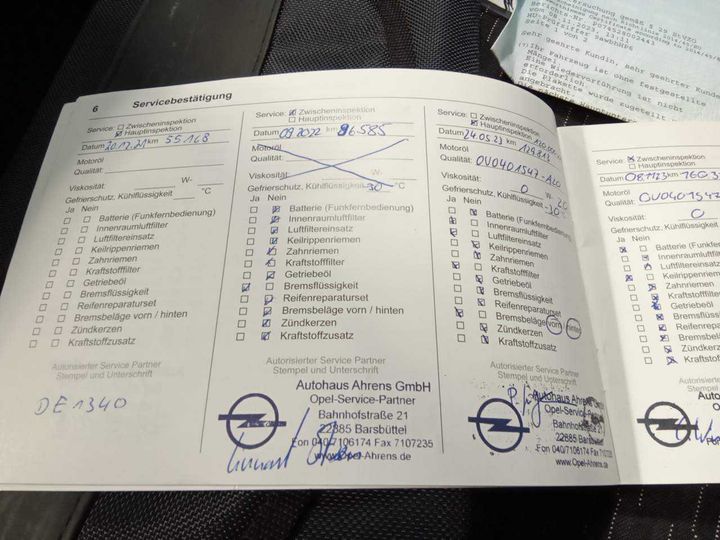 rsuchung gemäß § 29 StVZO
vom 08.11.2023, 13:11
Seite 1 von 2
Sehr geehrte Kundin, sehr geehrter Kunde
(7) Ihr Fahrzeug ist ohne festgestellte
Eine Wiedervorführung ist nicht
erforderlich
Die Plakette wurde zugeteilt
angebracht
6 Servicebestätigung
Service: Zwischeninspektion
Hauptinspektion
Datum 20.12.21 km 55.168
Motoröl
Qualität:
Viskosität: W-
Gefrierschutz, Kühlflüssigkeit °C
Ja Nein
Batterie (Funkfernbedienung)
Innenraumluftfilter
Luftfiltereinsatz
Keilrippenriemen
Zahnriemen
Kraftstofffilter
Getriebeöl
Bremsflüssigkeit
Reifenreparaturset
Bremsbeläge vorn / hinten
Zündkerzen
Kraftstoffzusatz
Autorisierter Service Partner
Stempel und Unterschrift
DE1340
Service: Zwischeninspektion
Hauptinspektion
Datum 09.2022 km 86.585
Motoröl
Qualität:
Viskosität: W-
Gefrierschutz, Kühlflüssigkeit -30 °C
Ja Nein
Batterie (Funkfernbedienung)
Innenraumluftfilter
Luftfiltereinsatz
Keilrippenriemen
Zahnriemen
Kraftstofffilter
Getriebeöl
Bremsflüssigkeit
Reifenreparaturset
Bremsbeläge vorn / hinten
Zündkerzen
Kraftstoffzusatz
Autorisierter Service Partner
Stempel und Unterschrift
Autohaus Ahrens GmbH
Opel-Service-Partner
Bahnhofstraße 21
22885 Barsbüttel
Fon 040/7106174 Fax 7107235
www.Opel-Ahrens.de
Service: Zwischeninspektion
Hauptinspektion
Datum 24.05.23 km
Motoröl
Qualität: OV0401547-A20
Viskosität: 0 W- 20
Gefrierschutz, Kühlflüssigkeit -30 °C
Ja Nein
Batterie (Funkfernbedienung)
Innenraumluftfilter
Luftfiltereinsatz
Keilrippenriemen
Zahnriemen
Kraftstofffilter
Getriebeöl
Bremsflüssigkeit
Reifenreparaturset
Bremsbeläge vorn / hinten
Zündkerzen
Kraftstoffzusatz
Autorisierter Service Partner
Stempel und Unterschrift
Autohaus Ahrens
Opel-Service-Partner
Bahnhofstraße 21
22885 Barsbüttel
Fon 040/7106174 Fax 7107235
www.Opel-Ahrens.de
Service: Zwischeninspektion
Hauptinspektion
Datum 081123 km 160.3
Motoröl
Qualität: OV0401547
Viskosität: 0
Gefrierschutz, Kühlflüssigkeit
Ja Nein
Batterie (Funkfernbedienung)
Innenraumluftfilter
Luftfiltereinsatz
Keilrippenriemen
Zahnriemen
Kraftstofffilter
Getriebeöl
Bremsflüssigkeit
Reifenreparaturset
Bremsbeläge vorn
Zündkerzen
Kraftstoffzusatz
Autorisierter Service
Stempel und